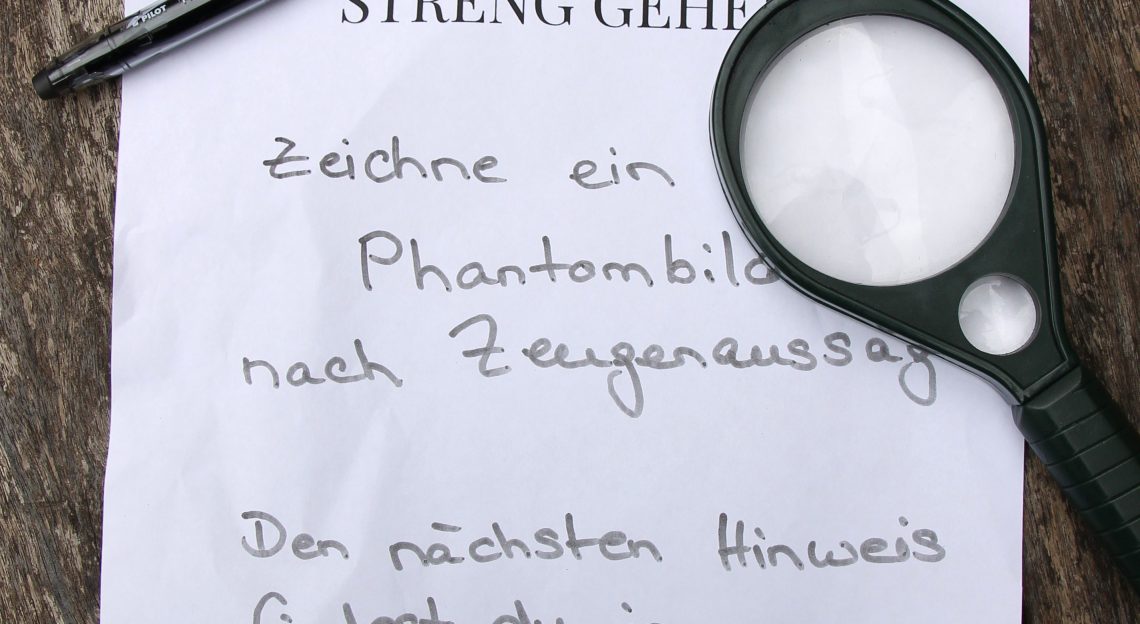 PILOT
STRENG GEHE
Zeichne ein
Phantombild
nach Zeugenaussag
Den nächsten Hinweis
findest du in